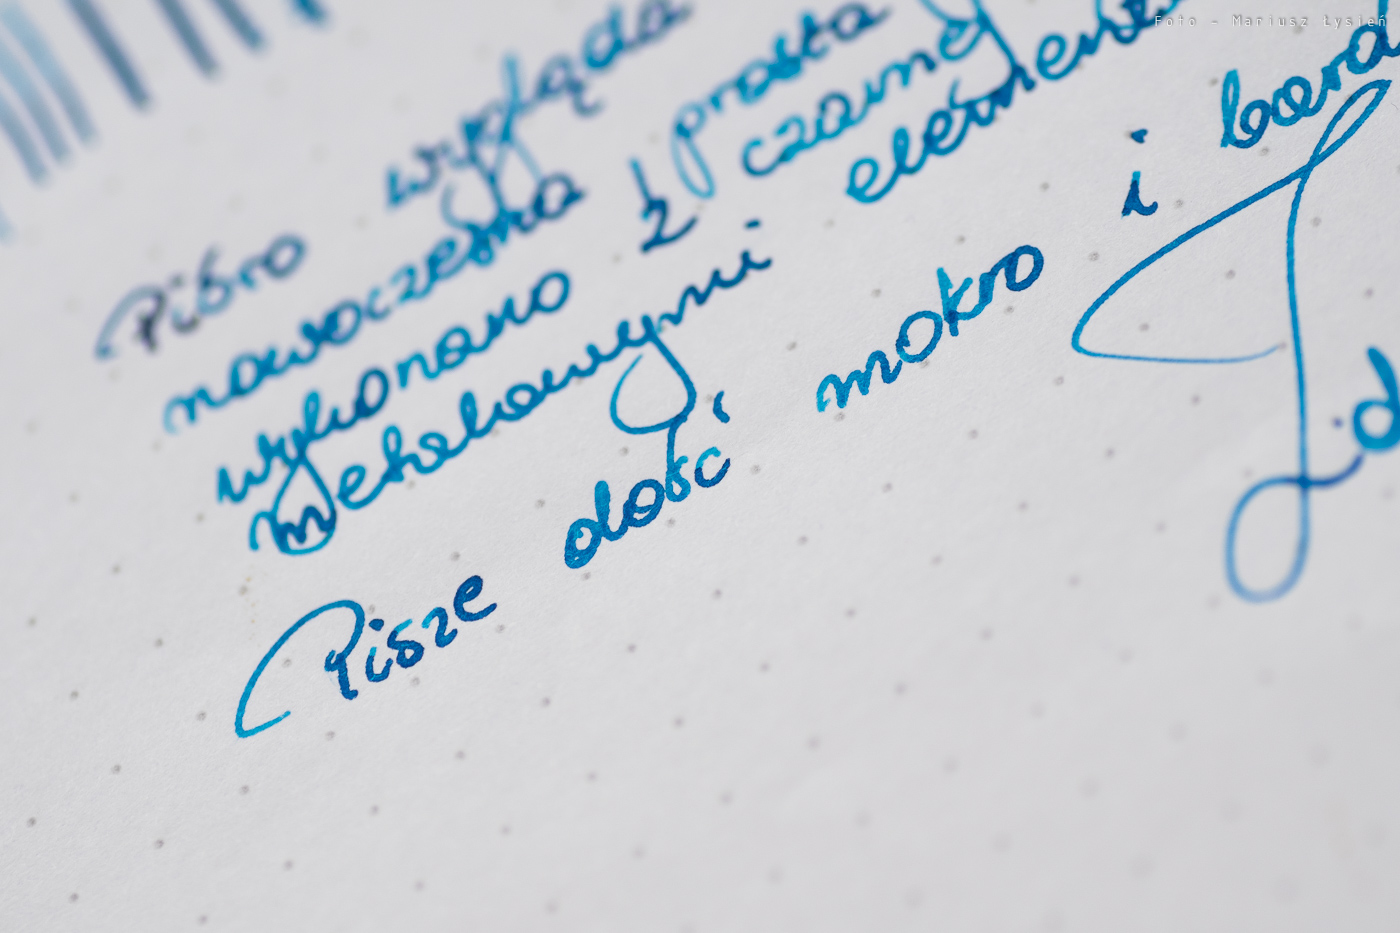 Foto - Mariusz Łysień
Pióro wygląda prosta
nowoczesna
wykonano z czarnej
metalowymi element
Pisze dość mokro i bard